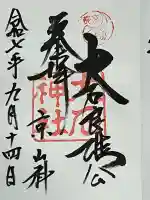 奉拝
京山科
大石良雄公
大石神社
令和七年九月十四日